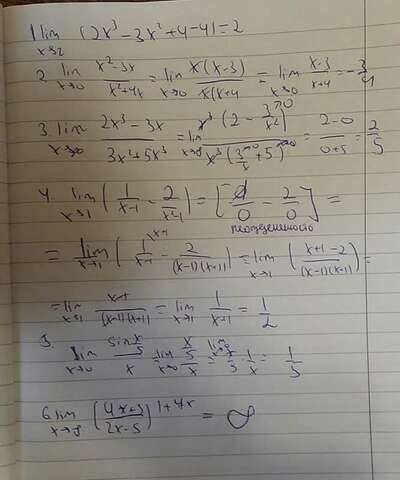 1 lim x→2 (2x³ - 3x² + 4 - 4) = 2
2 lim x→0 x²-3x / x²+4x = lim x→0 x(x-3) / x(x+4 = lim x→0 x-3 / x+4 = -3/4
3 lim x→∞ 2x³ - 3x / 3x² + 5x³ = lim x→∞ x³(2 - 3/x²→0) / x³(3/x→0 + 5) = 2-0 / 0+5 = 2/5
4 lim x→1 (1/x-1 - 2/x²-1) = [1/0 - 2/0] =
неопределенность
= lim x→1 (1/x-1 x+1 - 2/(x-1)(x+1)) = lim x→1 (x+1-2 / (x-1)(x+1)) =
= lim x→1 x-1 / (x-1)(x+1) = lim x→1 1/x+1 = 1/2
5. lim x→0 sin x/5 / x = lim x→0 x/5 / x = lim x→0 x/5 · 1/x = 1/5
6 lim x→∞ (4x+3 / 2x-5)^1+4x = ∞